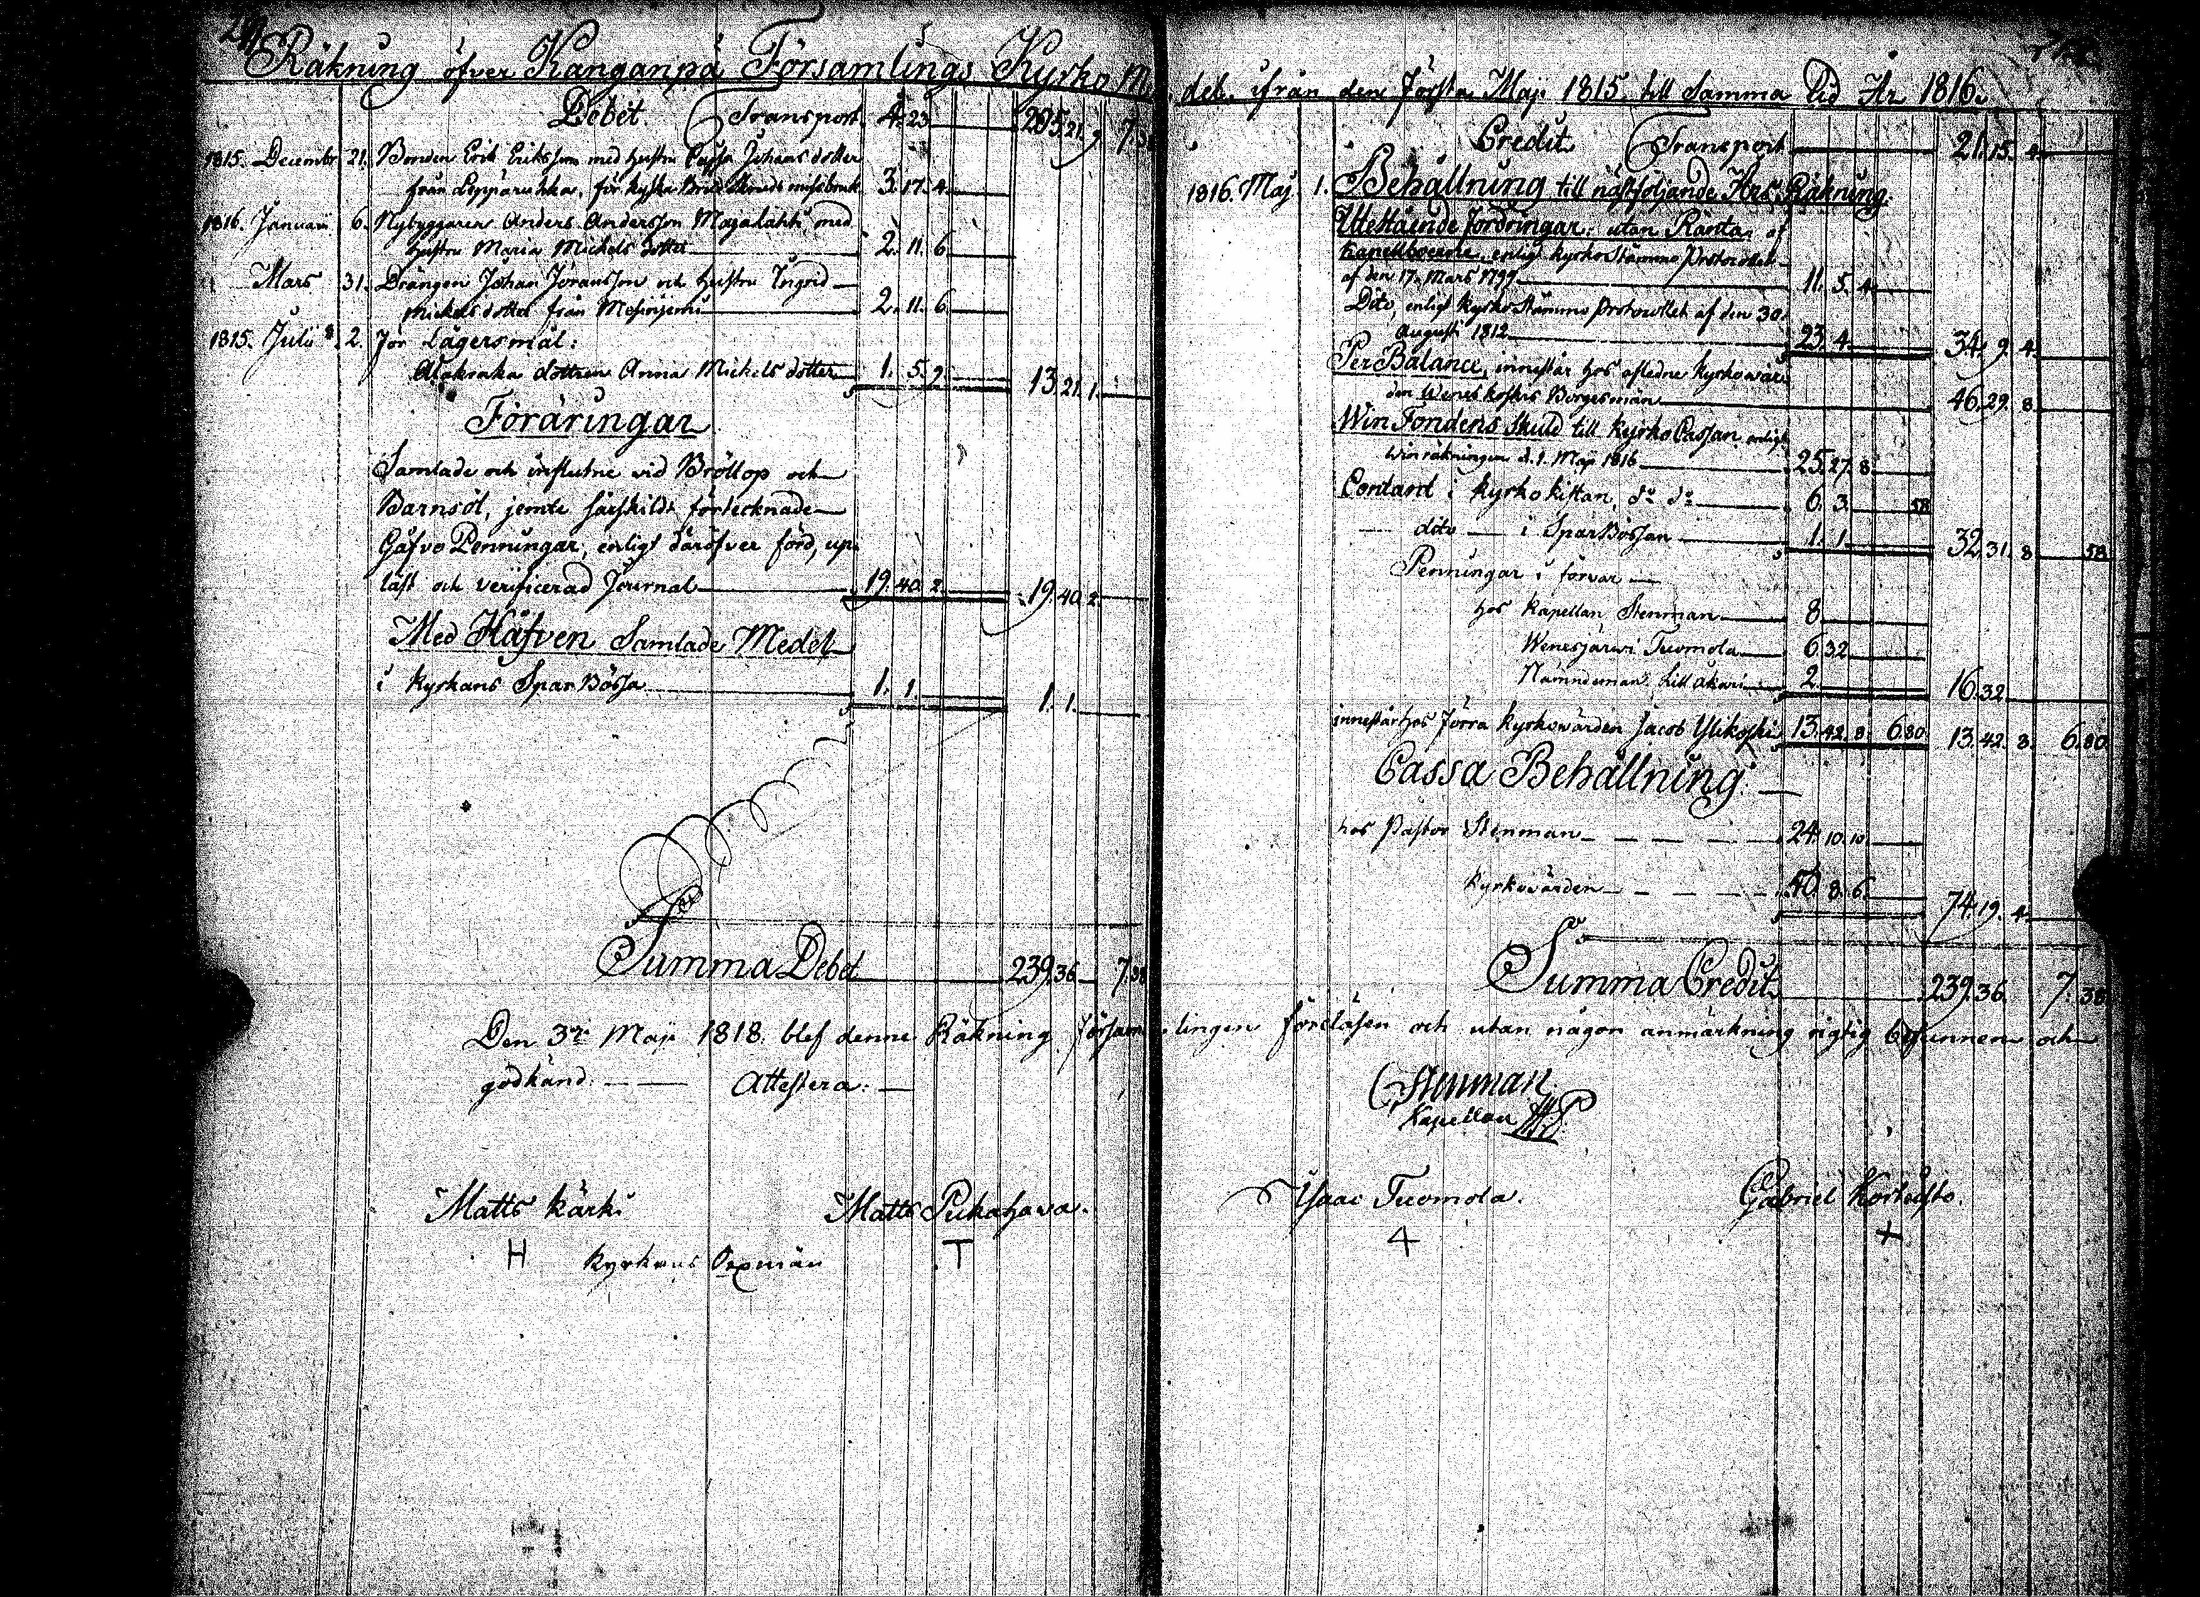 Räkning öfver Kanganpä Församlings Kyrko Me
Debet. Transport 4. 23. 205. 21. 9. 7. 38
1815. Decembr 21. Bonden Erik Eriksson med hustru Cajsa Johans dotter
från Leppäruhka, för kyska missbruk 3. 17. 4.
1816. Januari 6. Nybyggaren Anders Andersson Majalahti med
hustru Maria Michels dotter 2. 11. 6
Mars 31. Drängen Johan Joransson och hustru Ingrid
Michels dotter från 2. 11. 6
1815. Julii 2. För Lägersmål:
Alakraka dottren Anna Michels dotter 1. 5. 9. 13. 21. 1.
Föräringar
Samlade och influtne vid Bröllop och
Barnsöl, jemte särskildt förtecknade
Gåfvo Penningar, enligt däröfver förd, up-
läst och verificerad Journal 19. 40. 2. 19. 40. 2.
Med Håfven Samlade Medel
i Kyrkans Spar Bössa 1. 1. 1. 1.
Summa Debet 239. 36 7. 38
Den 3 Maji 1818 blef denne Räkning för Församlingen föreläsen och utan någon anmärkning rigtig befunnen och
godkänd. Attestera:
Matts Kärki Matts Pukahava.
H Kyrkans Sexmän T
del. ifrån den Första Maji 1815 till samma Tid År 1816.
Credit Transport 21. 15. 4.
1816. Maj. 1. Behållning till nästföljande Års Räkning.
Utestående fordringar: utan Ränta af
Kapellboerne, enligt kyrko Stämmo Protocollet
af den 17. Mars 1799 11. 5. 4.
Dito, enligt kyrko Stämmo Protocollet af den 30.
Augusti 1812 23. 4. 34. 9. 4.
Per Balance, innestår hos afledne kyrkowär-
den Wenes koskis Borgesmän 46. 29. 8.
Win Fondens Skuld till kyrko Cassan enligt
winräkningen d. 1. Maji 1816 25. 27. 8.
Contant i kyrko kistan, do do 6. 3. 58
dito i Spar Bössan 1. 1. 32. 31. 8. 58
Penningar i förvar
hos Kapellan Stenman 8.
Wenesjärwi Tuomola 6. 32
Nämndeman 2. 16. 32.
innestår hos förra kyrkowärden Jacob Ylikoski 13. 42. 8. 6. 80. 13. 42. 8. 6. 80
Cassa Behållning:
hos Pastor Stenman 24. 10. 10.
kyrkovärden 50. 8. 6. 74. 19. 4.
Summa Credit 239. 36. 7. 38
Stenman
Kapellan
Isaac Tuomola. Gabriel
4 +